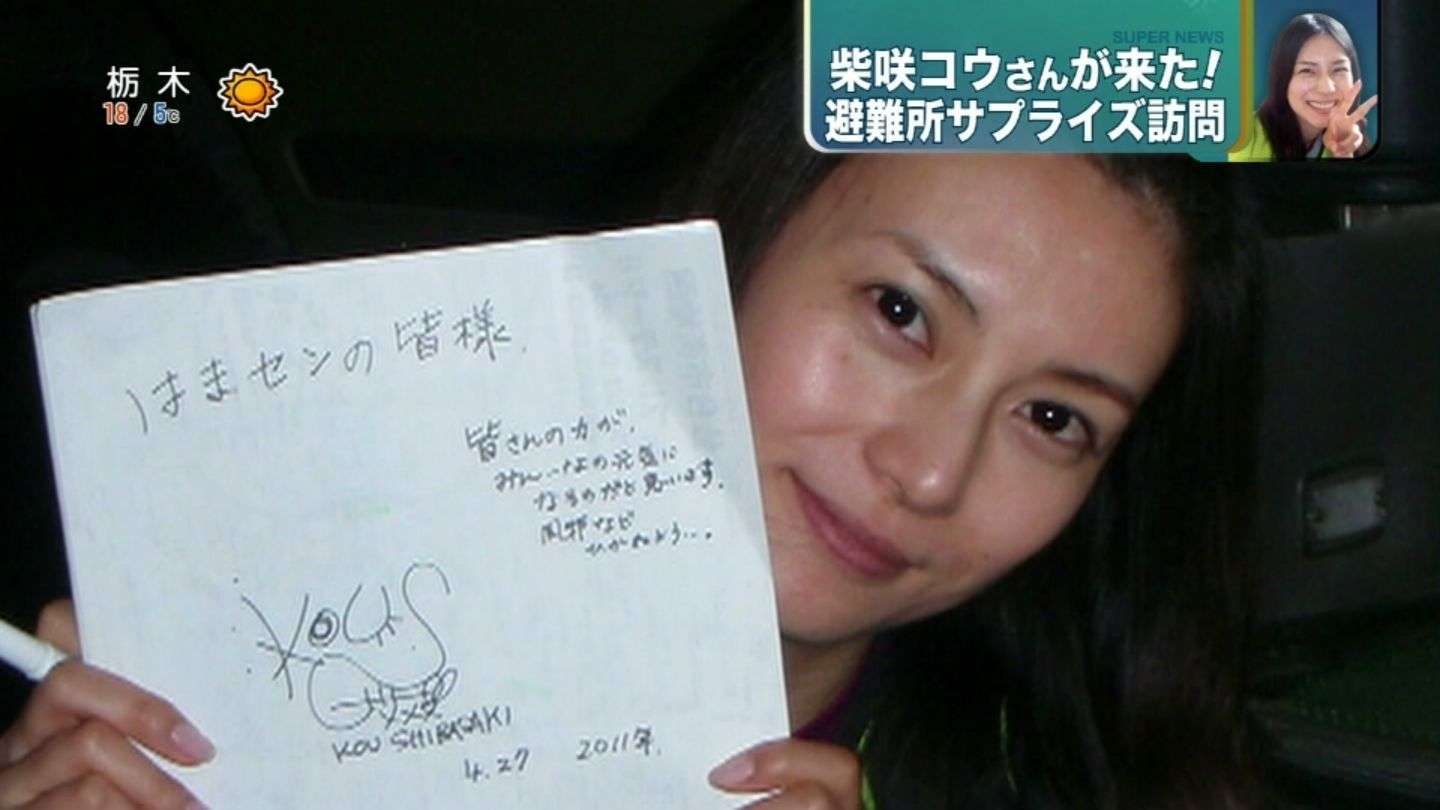 栃木
18/5℃
SUPER NEWS
柴咲コウさんが来た!
避難所サプライズ訪問
はまセンの皆様.
皆さんの力が、
みんなの元気に
なるのだと思います.
風邪など
ひかぬよう….
KOU SHIBASAKI
4.27 2011年.